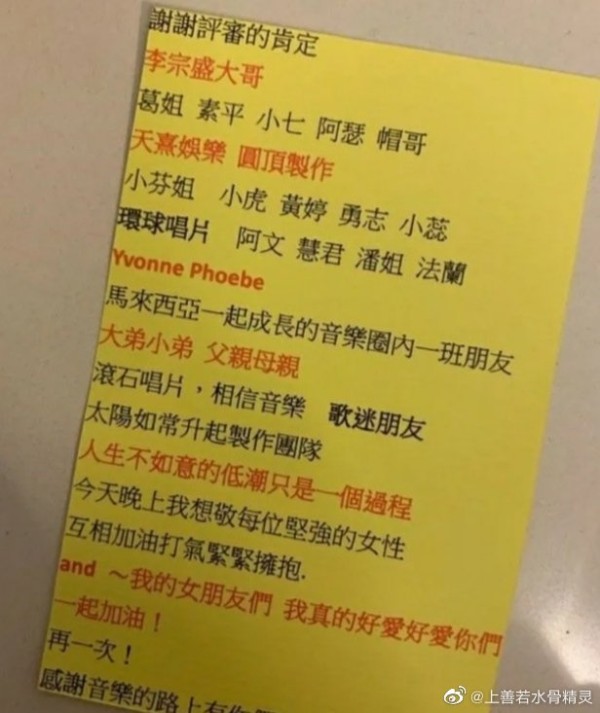 謝謝評審的肯定
李宗盛大哥
葛姐 素平 小七 阿瑟 帽哥
天熹娛樂 圓頂製作
小芬姐 小虎 黃婷 勇志 小蕊
環球唱片 阿文 慧君 潘姐 法蘭
Yvonne Phoebe
馬來西亞一起成長的音樂圈內一班朋友
大弟小弟 父親母親
滾石唱片，相信音樂 歌迷朋友
太陽如常升起製作團隊
人生不如意的低潮只是一個過程
今天晚上我想敬每位堅強的女性
互相加油打氣緊緊擁抱.
and ～我的女朋友們 我真的好愛好愛你們
一起加油！
再一次！
感謝音樂的路上有你
@上善若水骨精灵